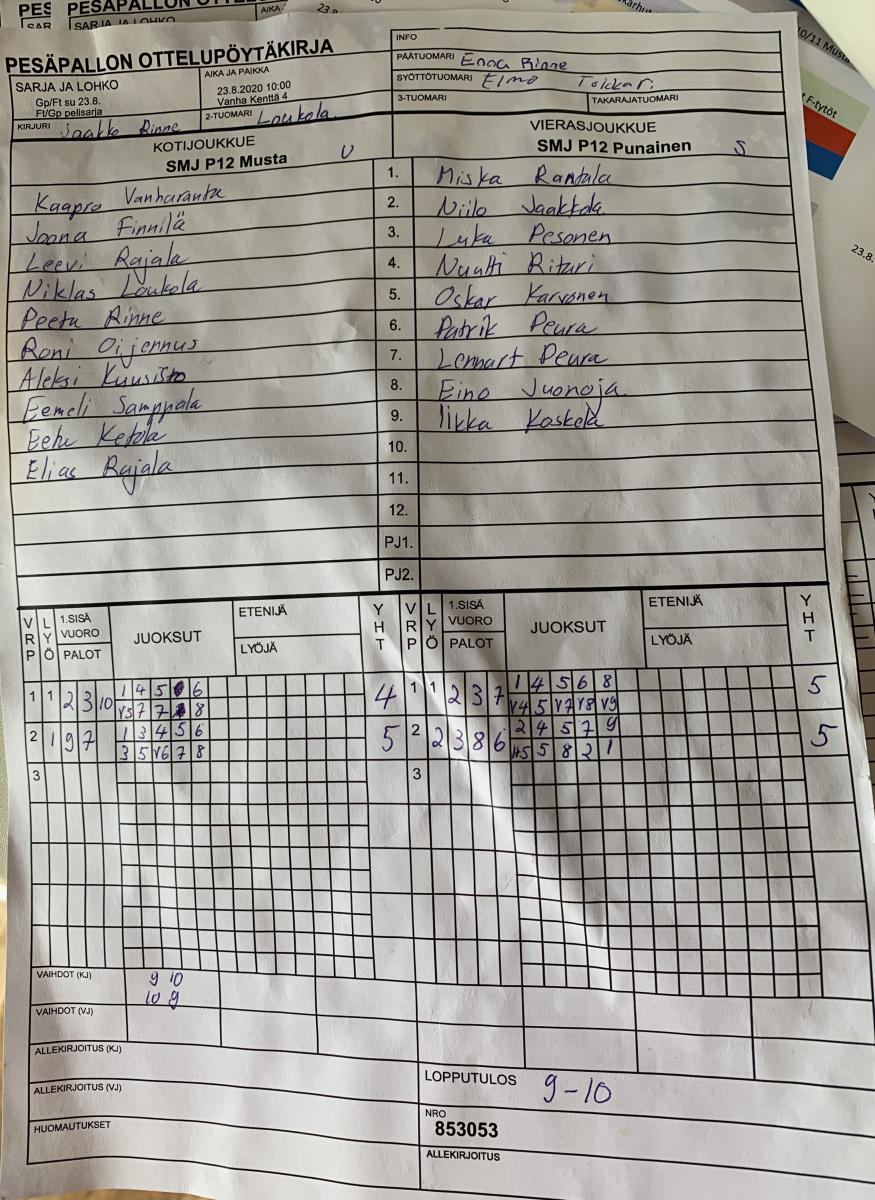 PESÄPALLON OTTELUPÖYTÄKIRJA
INFO
PÄÄTUOMARI Enna Rinne
SYÖTTÖTUOMARI Elmo Tokkari
3-TUOMARI TAKARAJATUOMARI
SARJA JA LOHKO
Gp/Ft su 23.8.
Ft/Gp pelisarja
AIKA JA PAIKKA
23.8.2020 10:00
Vanha Kenttä 4
KIRJURI Jaakko Rinne
2-TUOMARI Loukola
KOTIJOUKKUE
SMJ P12 Musta U
VIERASJOUKKUE
SMJ P12 Punainen S
Kaapro Vanharanta 1. Miska Rantala
Joona Finnilä 2. Niilo Jaakkola
Leevi Rajala 3. Luka Pesonen
Niklas Loukola 4. Nuutti Rituri
Peetu Rinne 5. Oskar Karvonen
Roni Oijennus 6. Patrik Peura
Aleksi Kuusisto 7. Lennart Peura
Eemeli Samppala 8. Eino Juonoja
Eetu Ketola 9. Iikka Koskela
Elias Rajala 10.
11.
12.
PJ1.
PJ2.
VRP LYÖ 1.SISÄ VUORO PALOT JUOKSUT ETENIJÄ LYÖJÄ YHT VRP LYÖ 1.SISÄ VUORO PALOT JUOKSUT ETENIJÄ LYÖJÄ YHT
1 1 2 3 10 1 4 5 6 4 1 1 2 3 7 1 4 5 6 8 5
V5 7 7 8 V4 5 V7 V8 V9
2 1 9 7 1 3 4 5 6 5 2 2 3 8 6 2 4 5 7 9 5
3 5 V6 7 8 H5 5 8 2 1
3 3
VAIHDOT (KJ) 9 10
10 9
VAIHDOT (VJ)
ALLEKIRJOITUS (KJ)
ALLEKIRJOITUS (VJ)
HUOMAUTUKSET
LOPPUTULOS 9-10
NRO
853053
ALLEKIRJOITUS